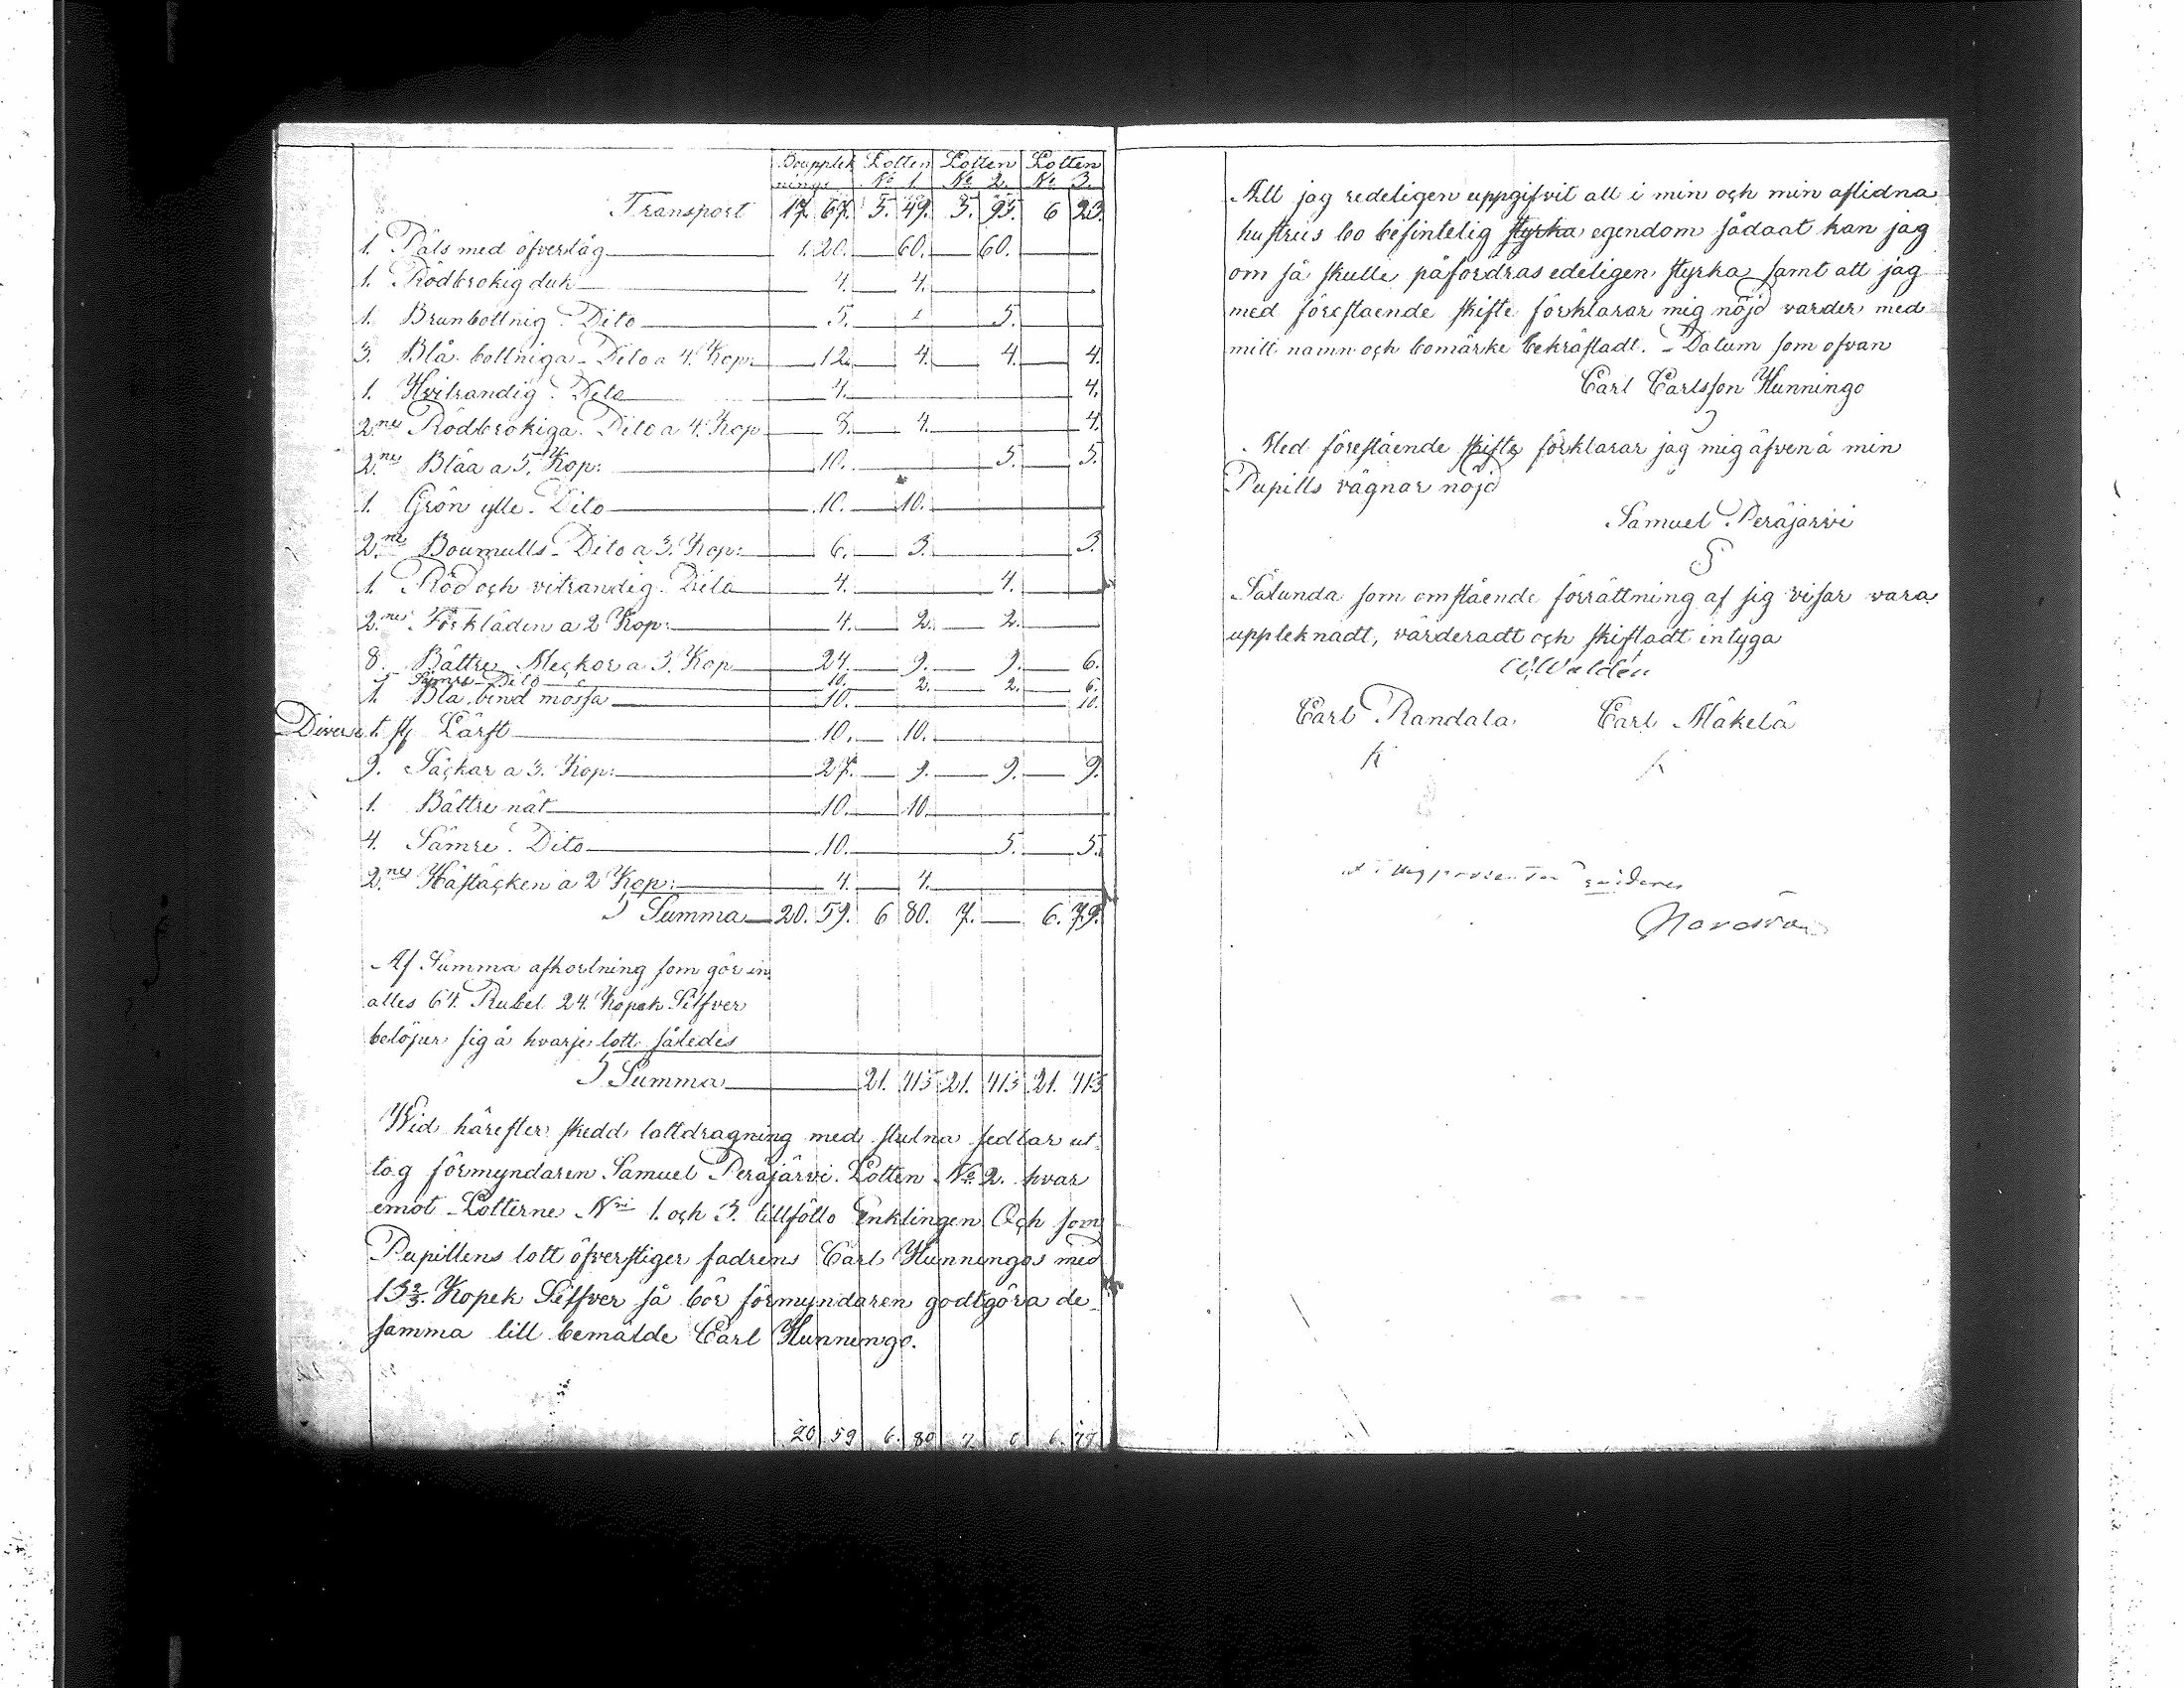 Boupplek Lotten Lotten Lotten
nings No 1. No 2. No 3.
Transport 17. 67. 5. 49. 5. 95. 6 23.
1. Päls med öfverlåg 1. 20. 60. 60.
1. Rödbrokig duk 4. 4.
1. Brunbottnig Dito 5. 5.
3. Blå bottniga Dito a 4. Kop. 12. 4. 4. 4.
1. Hvitrandig Dito 4. 4.
2.ne Rödbrokiga Dito a 4. Kop 8. 4. 4.
2.ne Blåa a 5. Kop: 10. 5. 5.
1. Grön ylle Dito 10. 10.
2.ne Boumulls Dito a 3. Kop: 6. 3. 3.
1. Röd och vitrandig Dito 4. 4.
2.ne Förkläden a 2 Kop: 4. 2. 2.
8. Bättre Meckor a 3. Kop 24. 9. 9. 6.
5 Sämre Dito 10. 2. 2. 6.
1. Blå bind mössa 10. 10.
Diverse 1. st Lärft 10. 10.
9. Säckar a 3. Kop: 27. 9. 9. 9.
1. Bättre nät 10. 10.
4. Sämre Dito 10. 5. 5.
2.ne Hästäcken a 2 Kop: 4. 4.
S Summa 20. 59. 6 80. 7. — 6. 79.
Af Summa afkortning som gör in
alles 64. Rubel 24. Kopek Silfver
belöper sig å hvarje lott således
S Summa 21. 41⅓ 21. 41⅓ 21. 41⅓
Wid härefter skedd lottdragning med slutna sedlar ut
tog förmyndaren Samuel Peräjärvi Lotten No 2. hvar
emot Lotterne Nri 1. och 3. tillföllo Enklingen Och som
Pupillens lott öfverstiger fadrens Carl Hunningos med
13⅔. Kopek Silfver så bör förmyndaren godtgöra de
samma till bemälde Carl Hunningo.
20 59 6. 80 7 0 6. 79.
Att jag redeligen uppgifvit all i min och min aflidna
hustrus bo befintelig styrka egendom sådaat kan jag
om så skulle påfordras edeligen styrka samt att jag
med förestaende skifte förklarar mig nöjd varder med
mitt namn och bomärke bekräftadt. - Datum som ofvan
Carl Carlsson Hunningo
Med förestående skifte förklarar jag mig äfven å min
Pupills vägnar nöjd
Samuel Peräjärvi
Sålunda som omstående förrättning af sig visar vara
uppteknadt, värderadt och skiftadt intyga
W. Waldén
Carl Randala Carl Mäkelä